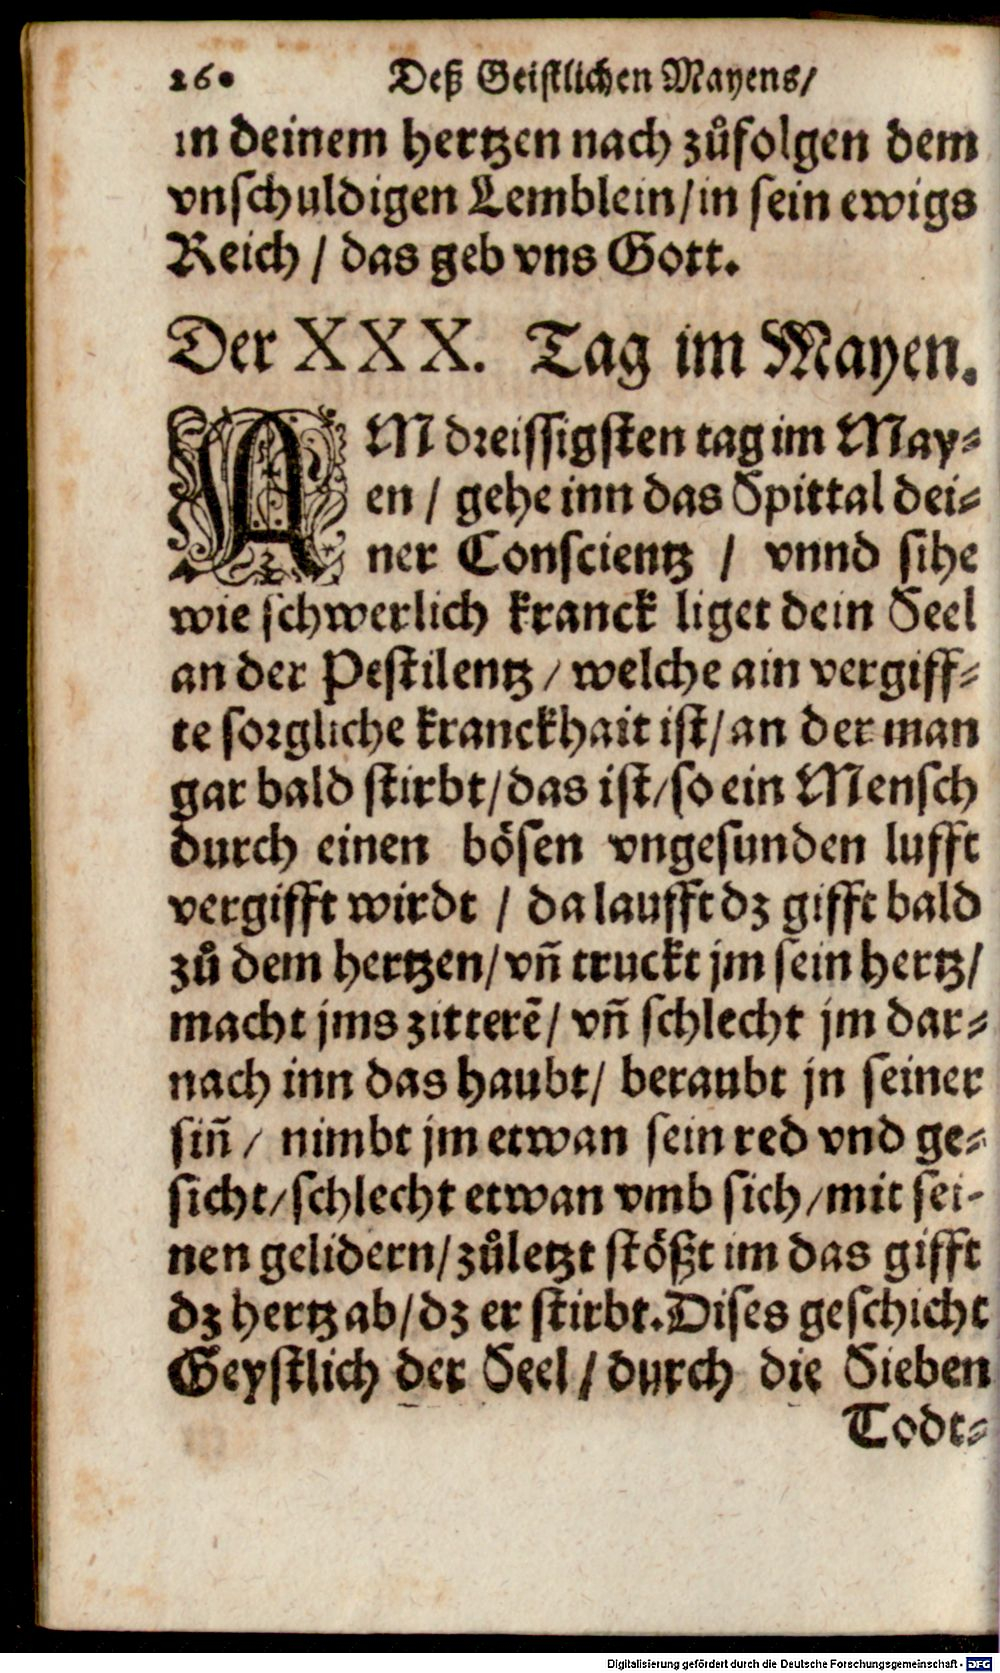 260 Deß Geistlichen Mayens/
in deinem hertzen nach zůfolgen dem
vnschuldigen Lemblein/in sein ewigs
Reich / das geb vns Gott.
Der XXX. Tag im Mayen.
AM dreissigsten tag im May⸗
en / gehe inn das Spittal dei⸗
ner Conscientz / vnnd sihe
wie schwerlich kranck liget dein Seel
an der Pestilentz / welche ain vergiff⸗
te sorgliche kranckhait ist/ an der man
gar bald stirbt/das ist/so ein Mensch
durch einen bösen vngesunden lufft
vergifft wirdt / da laufft dz gifft bald
zů dem hertzen/vñ truckt jm sein hertz/
macht jms zitterẽ/ vñ schlecht jm dar⸗
nach inn das haubt/ beraubt jn seiner
siñ / nimbt jm etwan sein red vnd ge⸗
sicht/schlecht etwan vmb sich/mit sei-
nen gelidern/zůletzt stößt im das gifft
dz hertz ab/dz er stirbt. Dises geschicht
Geystlich der Seel/durch die Sieben
Todt⸗
Digitalisierung gefördert durch die Deutsche Forschungsgemeinschaft - DFG